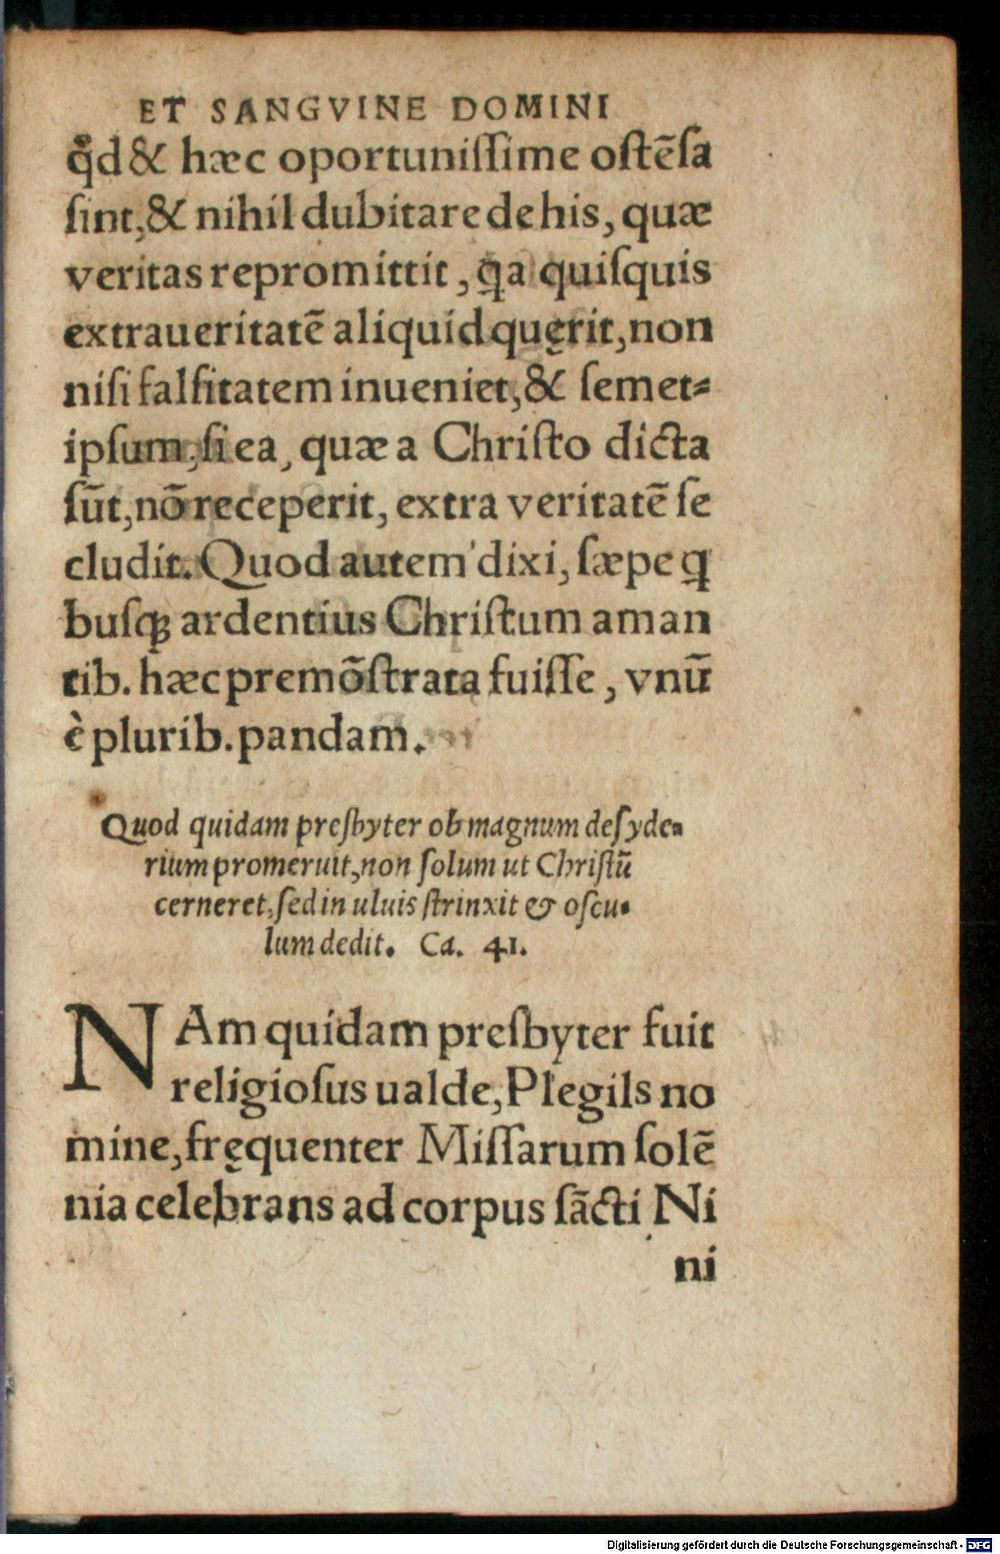 ET SANGVINE DOMINI
qͦd & hæc oportuniſſime oſtẽſa
ſint,& nihil dubitare de his, quæ
veritas repromittit, ꝗa quiſquis
extraueritatẽ aliquid quęrit,non
niſi falſitatem inueniet,& ſemet⸗
ipſum,ſi ea, quæ a Chriſto dicta
ſũt,nõ receperit, extra veritatẽ ſe
cludit. Quod autem dixi, ſæpe ꝗ
buſq; ardentius Chriſtum aman
tib. hæc premõſtrata fuiſſe, vnũ
è plurib. pandam.
Quod quidam preſbyter ob magnum deſyde⸗
rium promeruit,non ſolum ut Chriſtũ
cerneret,ſed in uluis ſtrinxit & oſcu⸗
lum dedit. Ca. 41.
NAm quidam preſbyter fuit
religioſus ualde,Plegils no
mine,fręquenter Miſſarum ſolẽ
nia celebrans ad corpus ſãcti Ni
ni
Digitalisierung gefördert durch die Deutsche Forschungsgemeinschaft - DFG